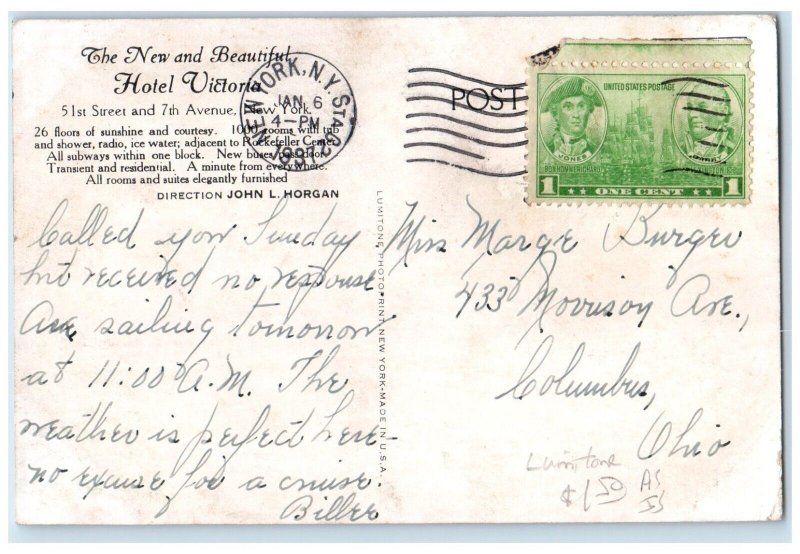 The New and Beautiful
Hotel Victoria
51st Street and 7th Avenue, New York
26 floors of sunshine and courtesy. 1000 rooms with tub
and shower, radio, ice water; adjacent to Rockefeller Center.
All subways within one block. New buses pass door.
Transient and residential. A minute from everywhere.
All rooms and suites elegantly furnished
DIRECTION JOHN L. HORGAN
NEW YORK, N.Y. STA.
JAN 6
4-PM
1937
POST
UNITED STATES POSTAGE
JONES
BON HOMME RICHARD
1 ONE CENT 1
Called you Sunday
but received no response
Am sailing tomorrow
at 11:00 A.M. The
weather is perfect here-
no excuse for a cruise.
Biller
LUMITONE PHOTOPRINT NEW YORK-MADE IN U.S.A.
Miss Marge Burger
433 Morrison Ave.,
Columbus,
Ohio
Lumitone
$1.50